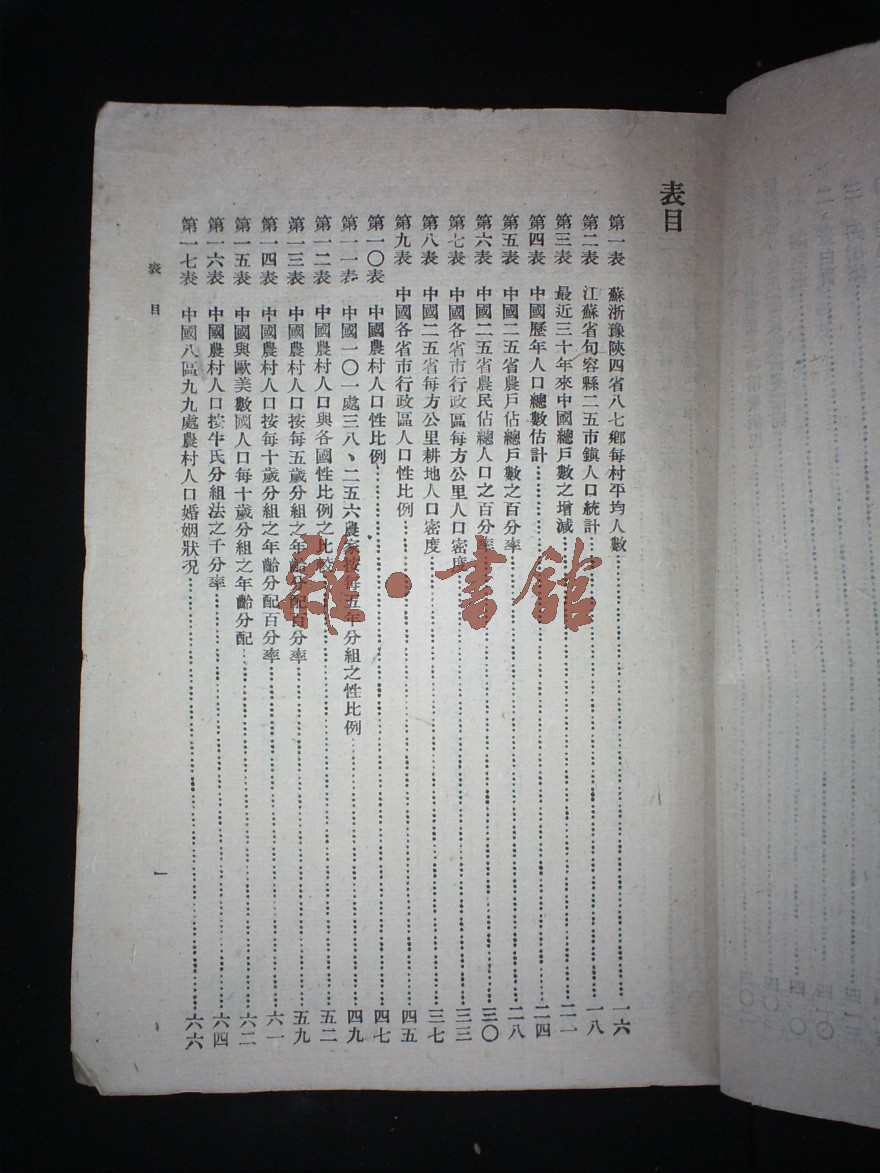 表目
第一表 蘇浙豫陝四省八七鄉每村平均人數……一六
第二表 江蘇省句容縣二五市鎮人口統計……一八
第三表 最近三十年來中國總戶數之增減……二一
第四表 中國歷年人口總數估計……二四
第五表 中國二五省農戶佔總戶數之百分率……二八
第六表 中國二五省農民佔總人口之百分率……三〇
第七表 中國各省市行政區每方公里人口密度……三三
第八表 中國二五省每方公里耕地人口密度……三七
第九表 中國各省市行政區人口性比例……四五
第一〇表 中國農村人口性比例……四七
第一一表 中國一〇一處三八、二五六農家按每五年分組之性比例……四九
第一二表 中國農村人口與各國性比例之比較……五二
第一三表 中國農村人口按每五歲分組之年齡分配百分率……五九
第一四表 中國農村人口按每十歲分組之年齡分配百分率……六一
第一五表 中國與歐美數國人口每十歲分組之年齡分配……六二
第一六表 中國農村人口按牛氏分組法之千分率……六四
第一七表 中國八區九九處農村人口婚姻狀況……六六
表目
一
雜·書館